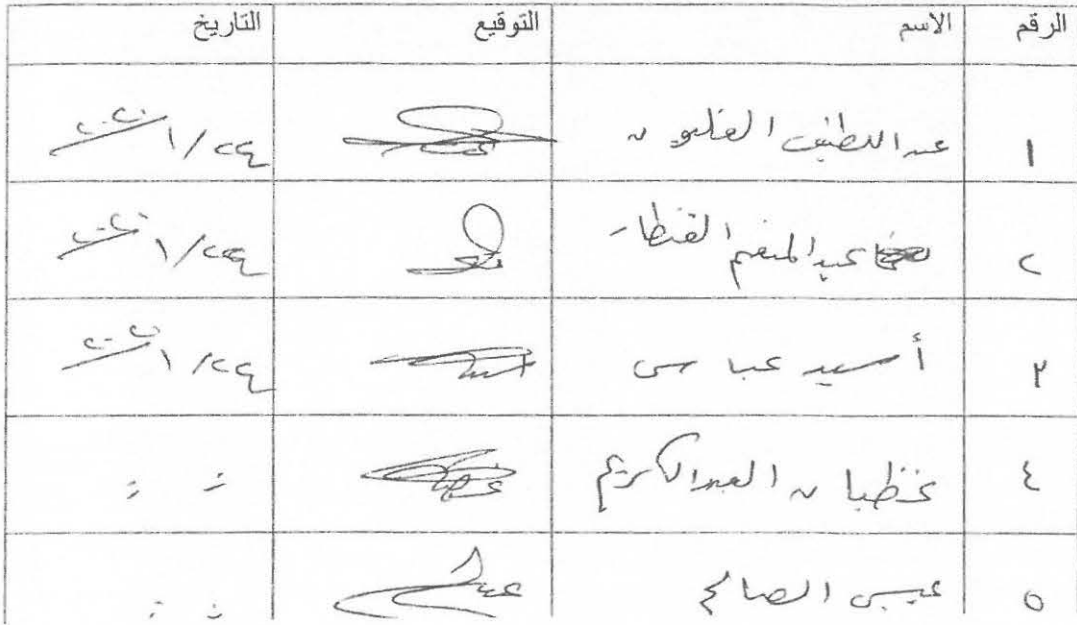 الرقم الاسم التوقيع التاريخ
١ عبد اللطيف الغليون ٢٤/١/٢٠٢٠
٢ عبد المنعم القنطار ٢٤/١/٢٠٢٠
٣ أسيد عباسي ٢٤/١/٢٠٢٠
٤ العبد الكريم = =
٥ عيسى الصالح = =